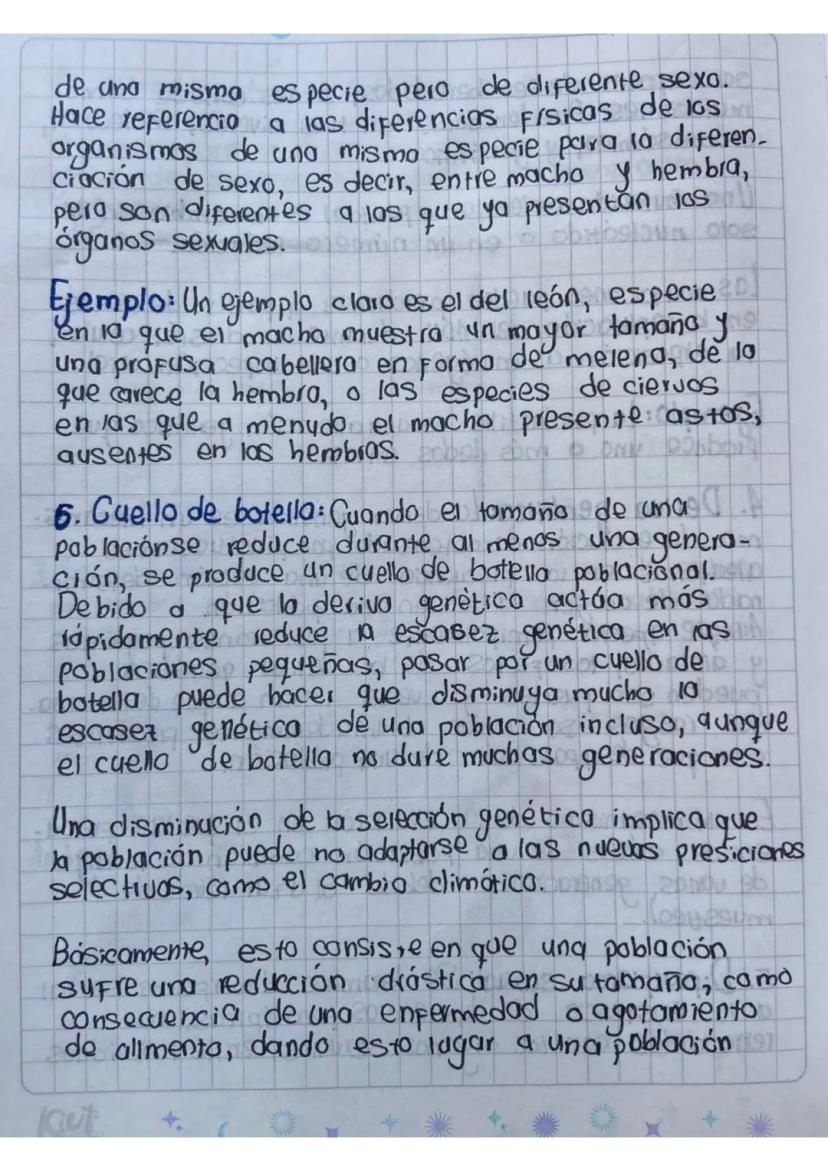 de una misma especie pero de diferente sexo.
Hace referencia a las diferencias físicas de los
organismos de una misma especie para la diferen-
ciación de sexo, es decir, entre macho y hembra,
pero son diferentes a los que ya presentan los
órganos sexuales.
Ejemplo: Un ejemplo claro es el del león, especie
en la que el macho muestra un mayor tamaño y
una profusa cabellera en forma de melena, de la
que carece la hembra, o las especies de ciervos
en las que a menudo el macho presente: astos,
ausentes en las hembras.
5. Cuello de botella: Cuando el tamaño de una
poblaciónse reduce durante al menos una genera-
ción, se produce un cuello de botella poblacional.
Debido a que la deriva genética actúa más
rápidamente reduce la escasez genética en las
poblaciones pequeñas, pasar por un cuello de
botella puede hacer que disminuya mucho la
escasez genética de una población incluso, aunque
el cuello de botella no dure muchas generaciones.
Una disminución de la selección genética implica que
la población puede no adaptarse a las nuevas presiciones
selectivas, como el cambio climático.
Básicamente, esto consiste en que una población
sufre una reducción drástica en su tamaño, como
consecuencia de una enfermedad o agotamiento
de alimento, dando esto lugar a una población